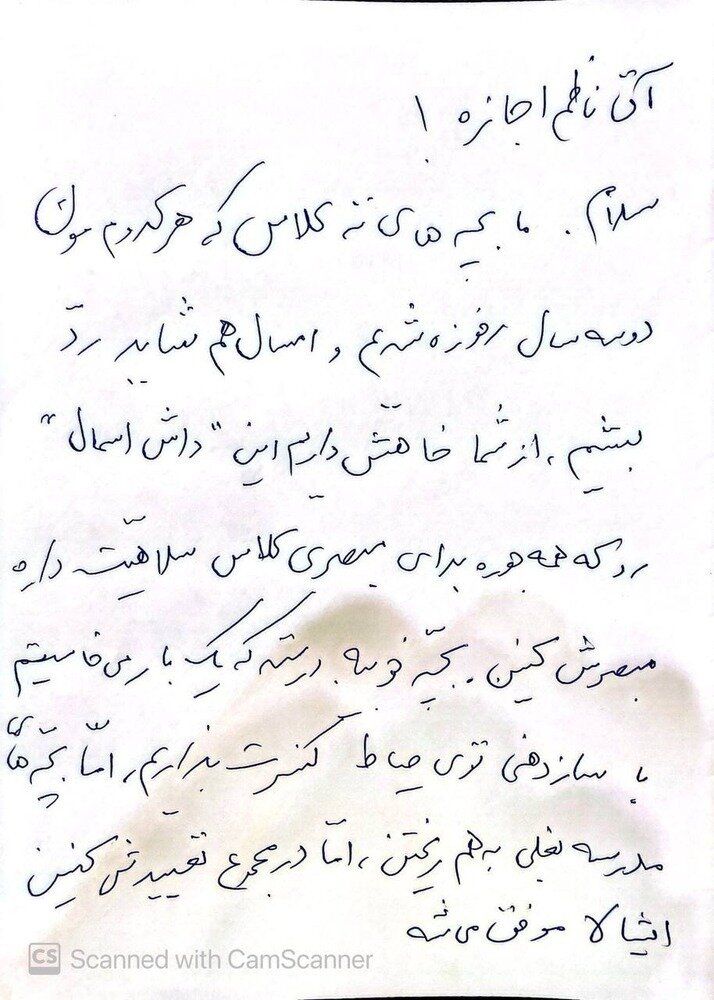 آقای ناظم اجازه !
سلام . ما بچه های ته کلاس که هرکدوم
دوسه سال رفوزه شدیم و امسال هم شاید ردّ
بشیم ، از شما خاهش داریم این "داش اسمال"
رو که همه جوره برای مبصری کلاس سلاهیّت داره
مبصرش کنین . بچّه خوبیه . درسته که یک بار می خاسیتم
با سازدهنی توی حیاط کنسرت بذاریم ، امّا بچّه های
مدرسه بغلی به هم ریختن ، امّا در مجموع تعییدش کنین
ایشالا موفق می شه
CS Scanned with CamScanner